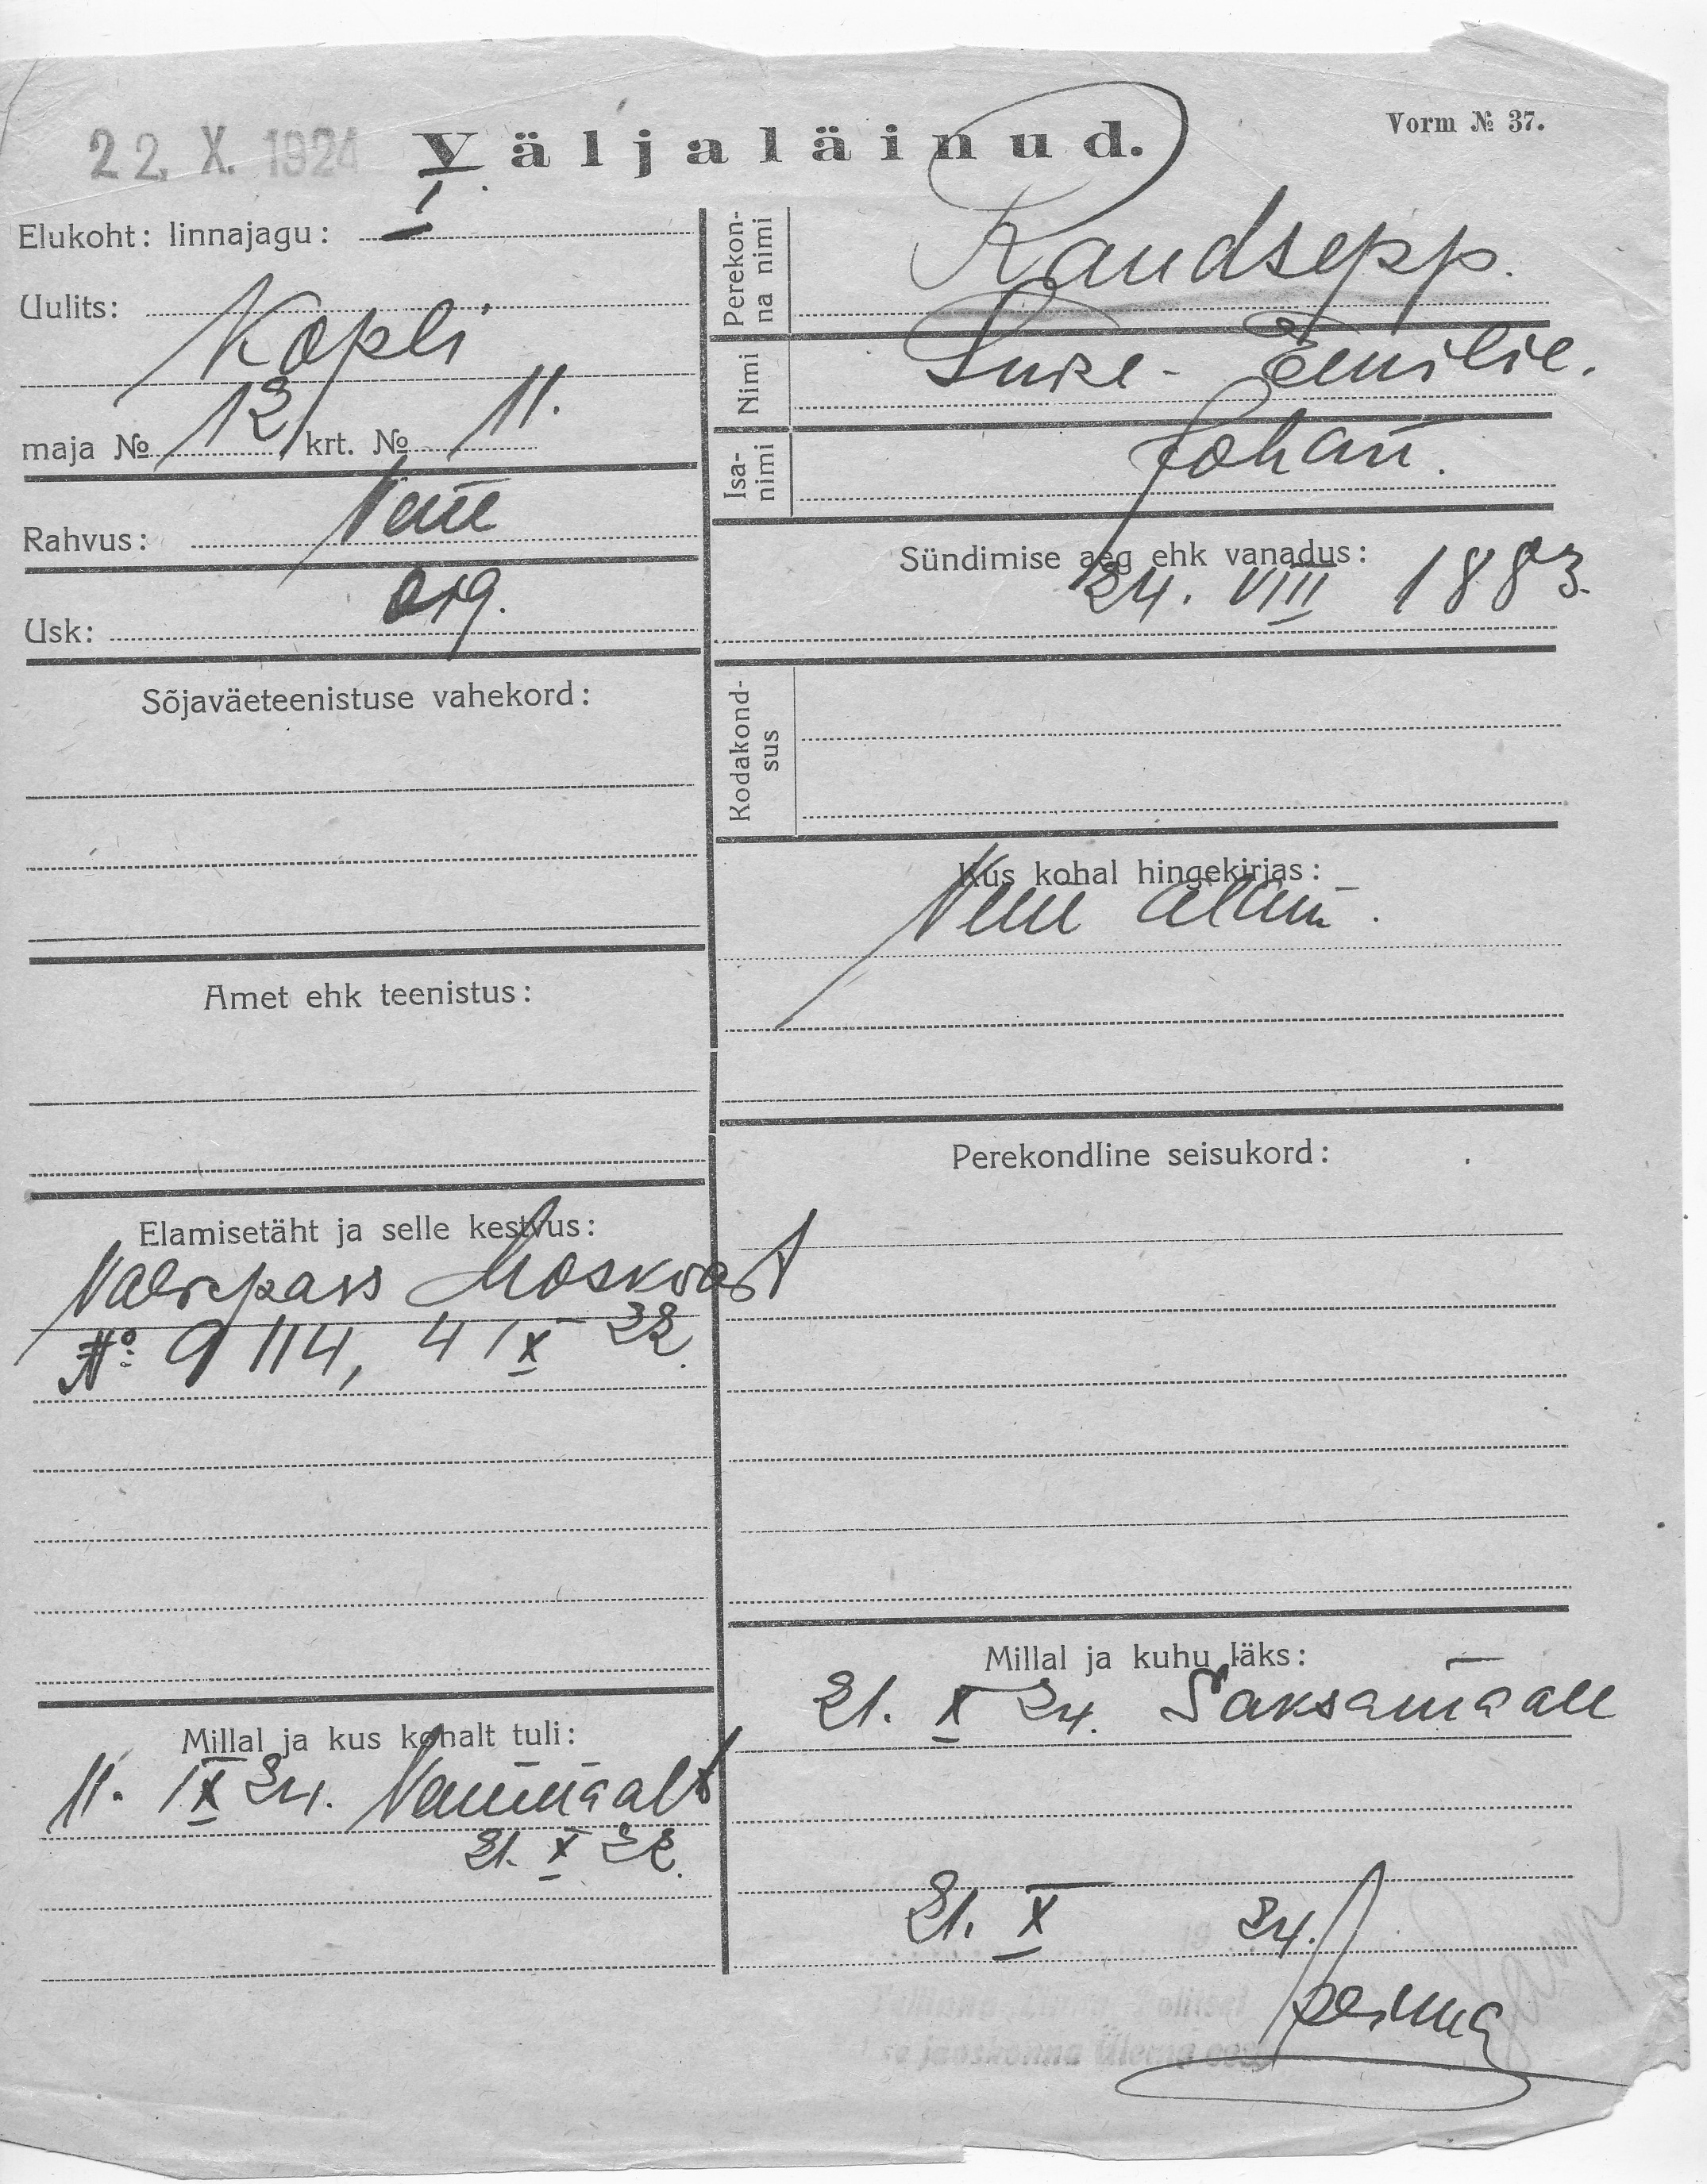 22. X. 1924
Väljaläinud.
Vorm № 37.
Elukoht: linnajagu: I
Uulits: Kopli
maja № 12 krt. № 11.
Rahvus: Vene
Usk:
Sõjaväeteenistuse vahekord:
Amet ehk teenistus:
Elamisetäht ja selle kestvus:
Välispass Moskvast
№ 9114, 4 IX 22.
Millal ja kus kohalt tuli:
11. IX 24. Venemaalt
21. X 22.
Perekonna nimi Raudsepp.
Nimi Emilie.
Isanimi Johan.
Sündimise aeg ehk vanadus:
24. VIII 1883.
Kodakondsus
Kus kohal hingekirjas:
Vene alam.
Perekondline seisukord:
Millal ja kuhu läks:
21. X 24. Saksamaale
21. X 1924.
Tallinna Linna Politsei
jaoskonna Ülema eest